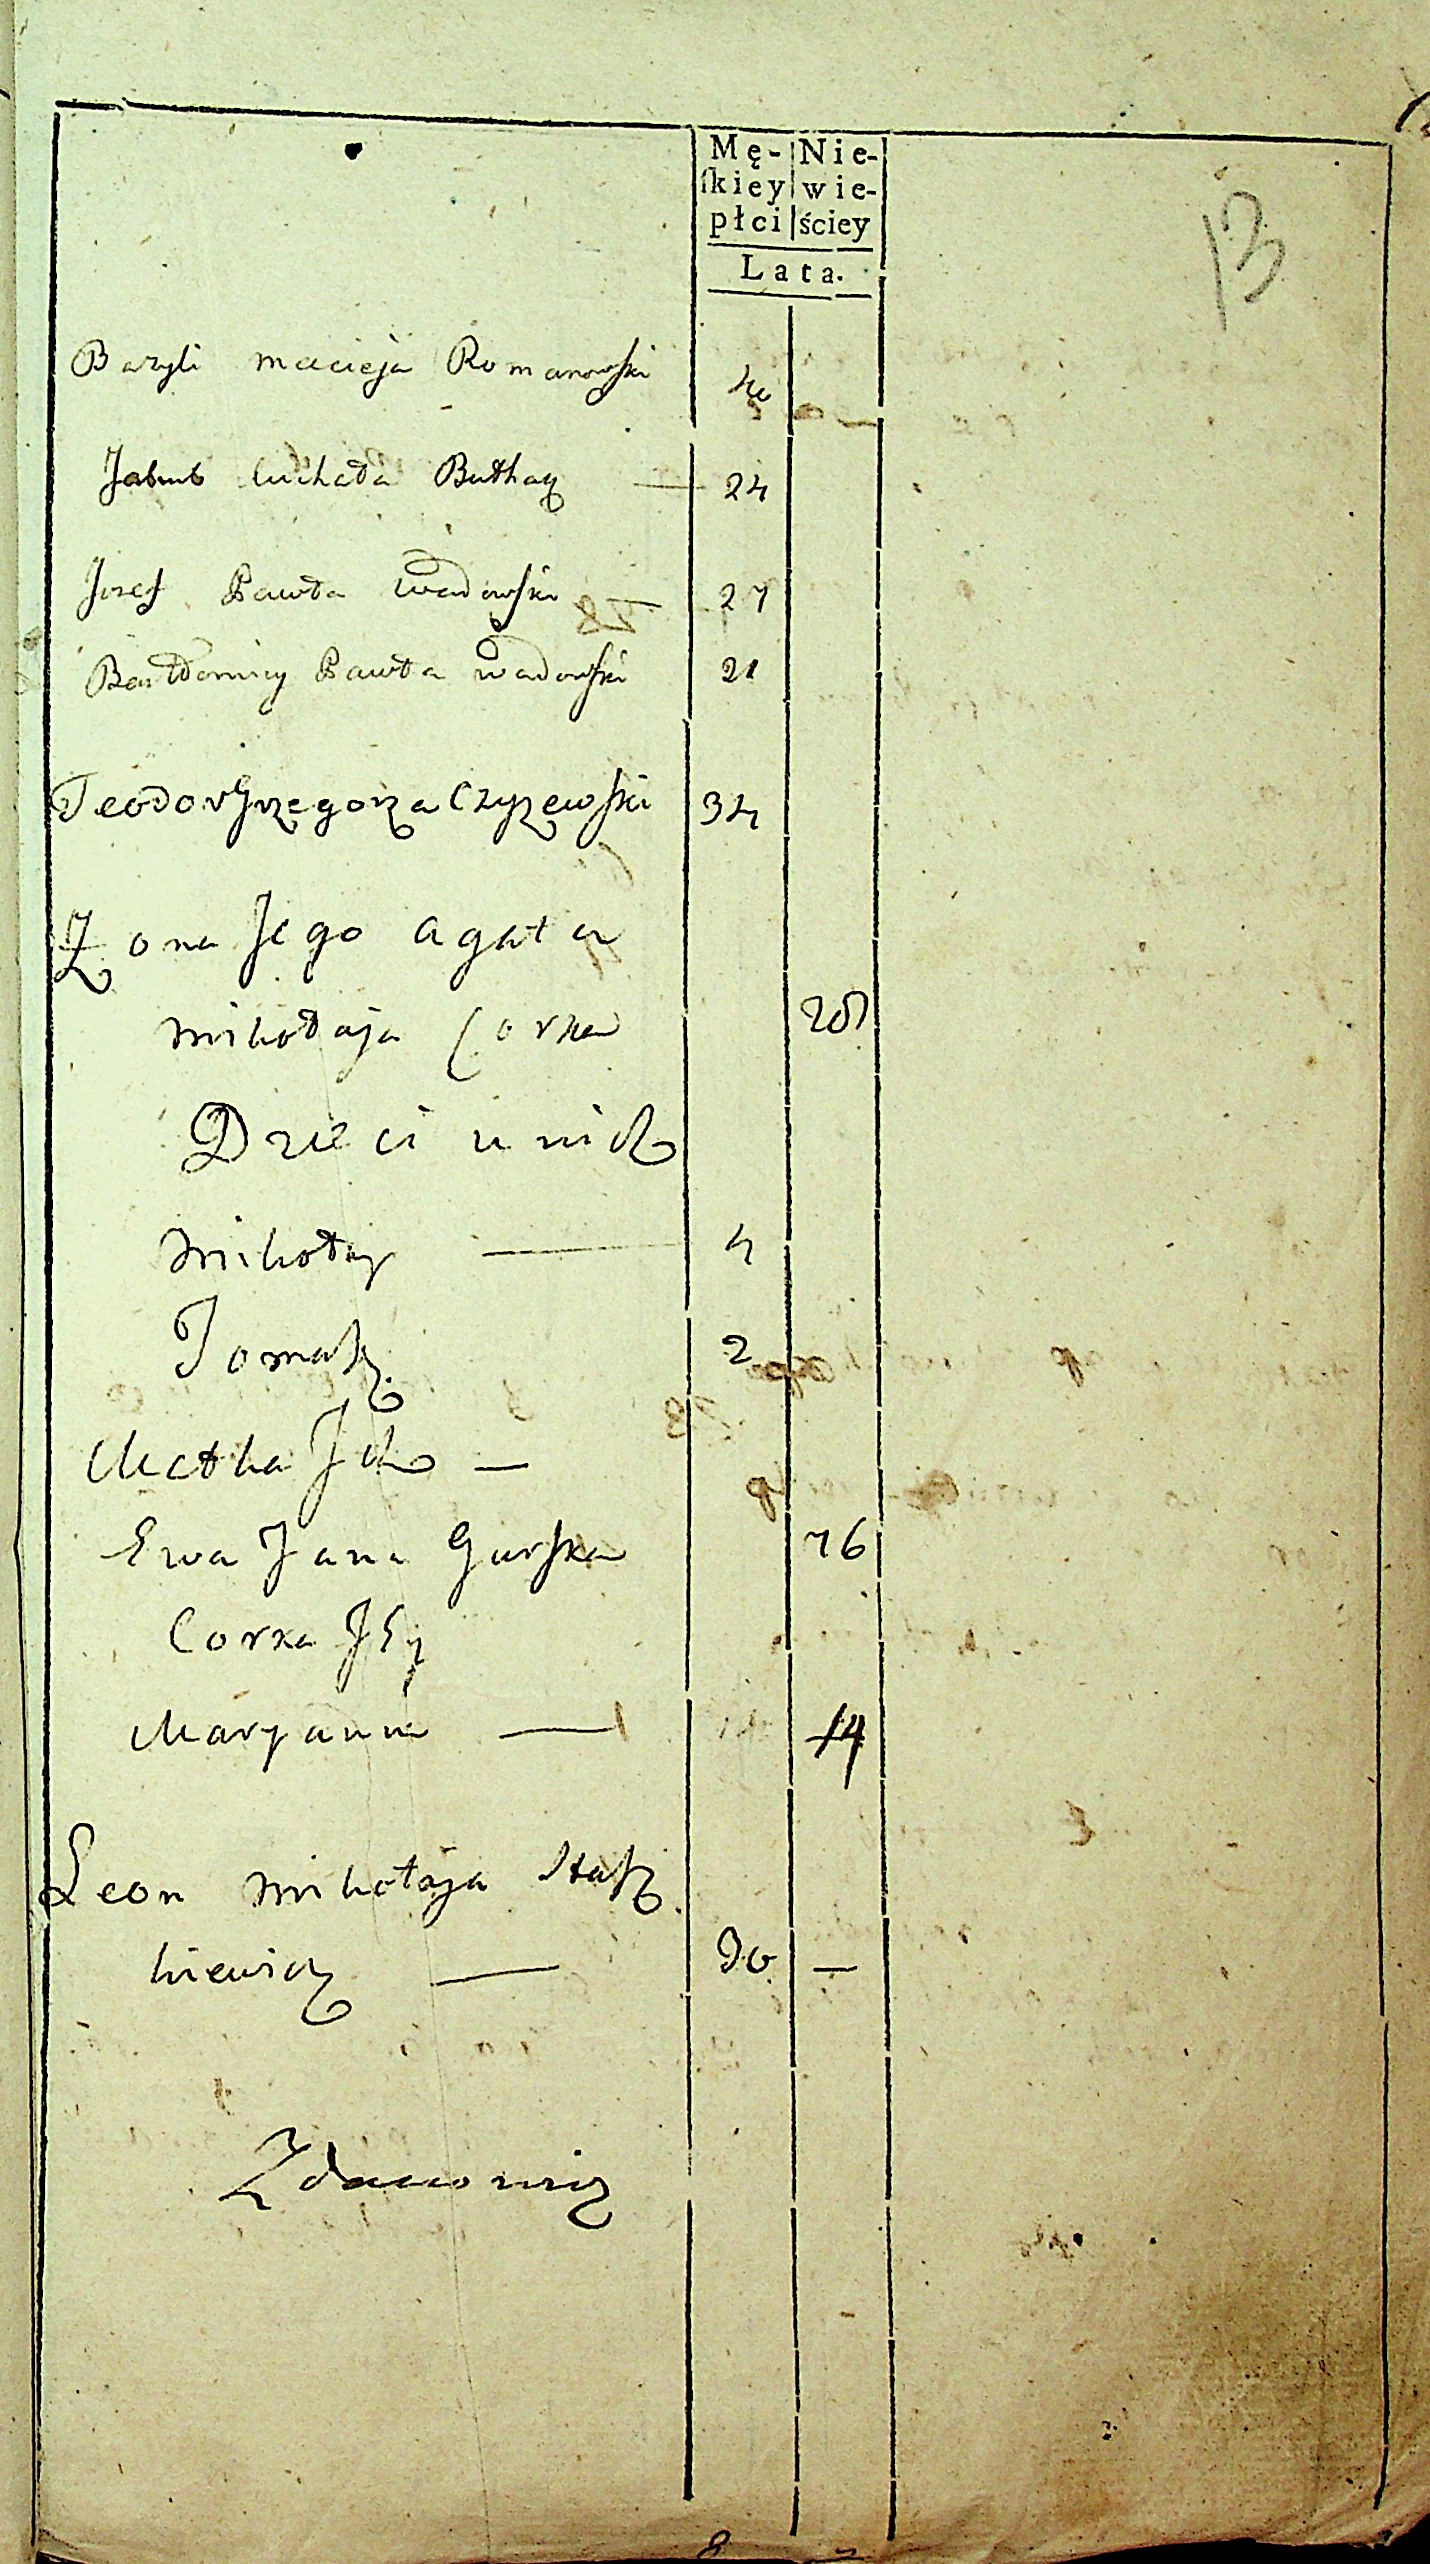 13
Mę- Nie-
ſkiey wie-
płci ściey
Lata.
Bazyli Macieja Romanowski 40
Jakub Michała Buthay 24
Jozef Pawła Wadowski 27
Bartłomiey Pawła Wadowski 21
Teodor Grzegorza Czyzewski 34
Zona Jego Agata
Mikołaja Corka 28
Dzieci u nich
Mikołay 4
Tomasz 2
Matka Ich
Ewa Jana Gurska 76
Corka Jey
Maryanna 14
Leon Mikołaja Stasz
kiewicz 30 —
Zdanowicz
8